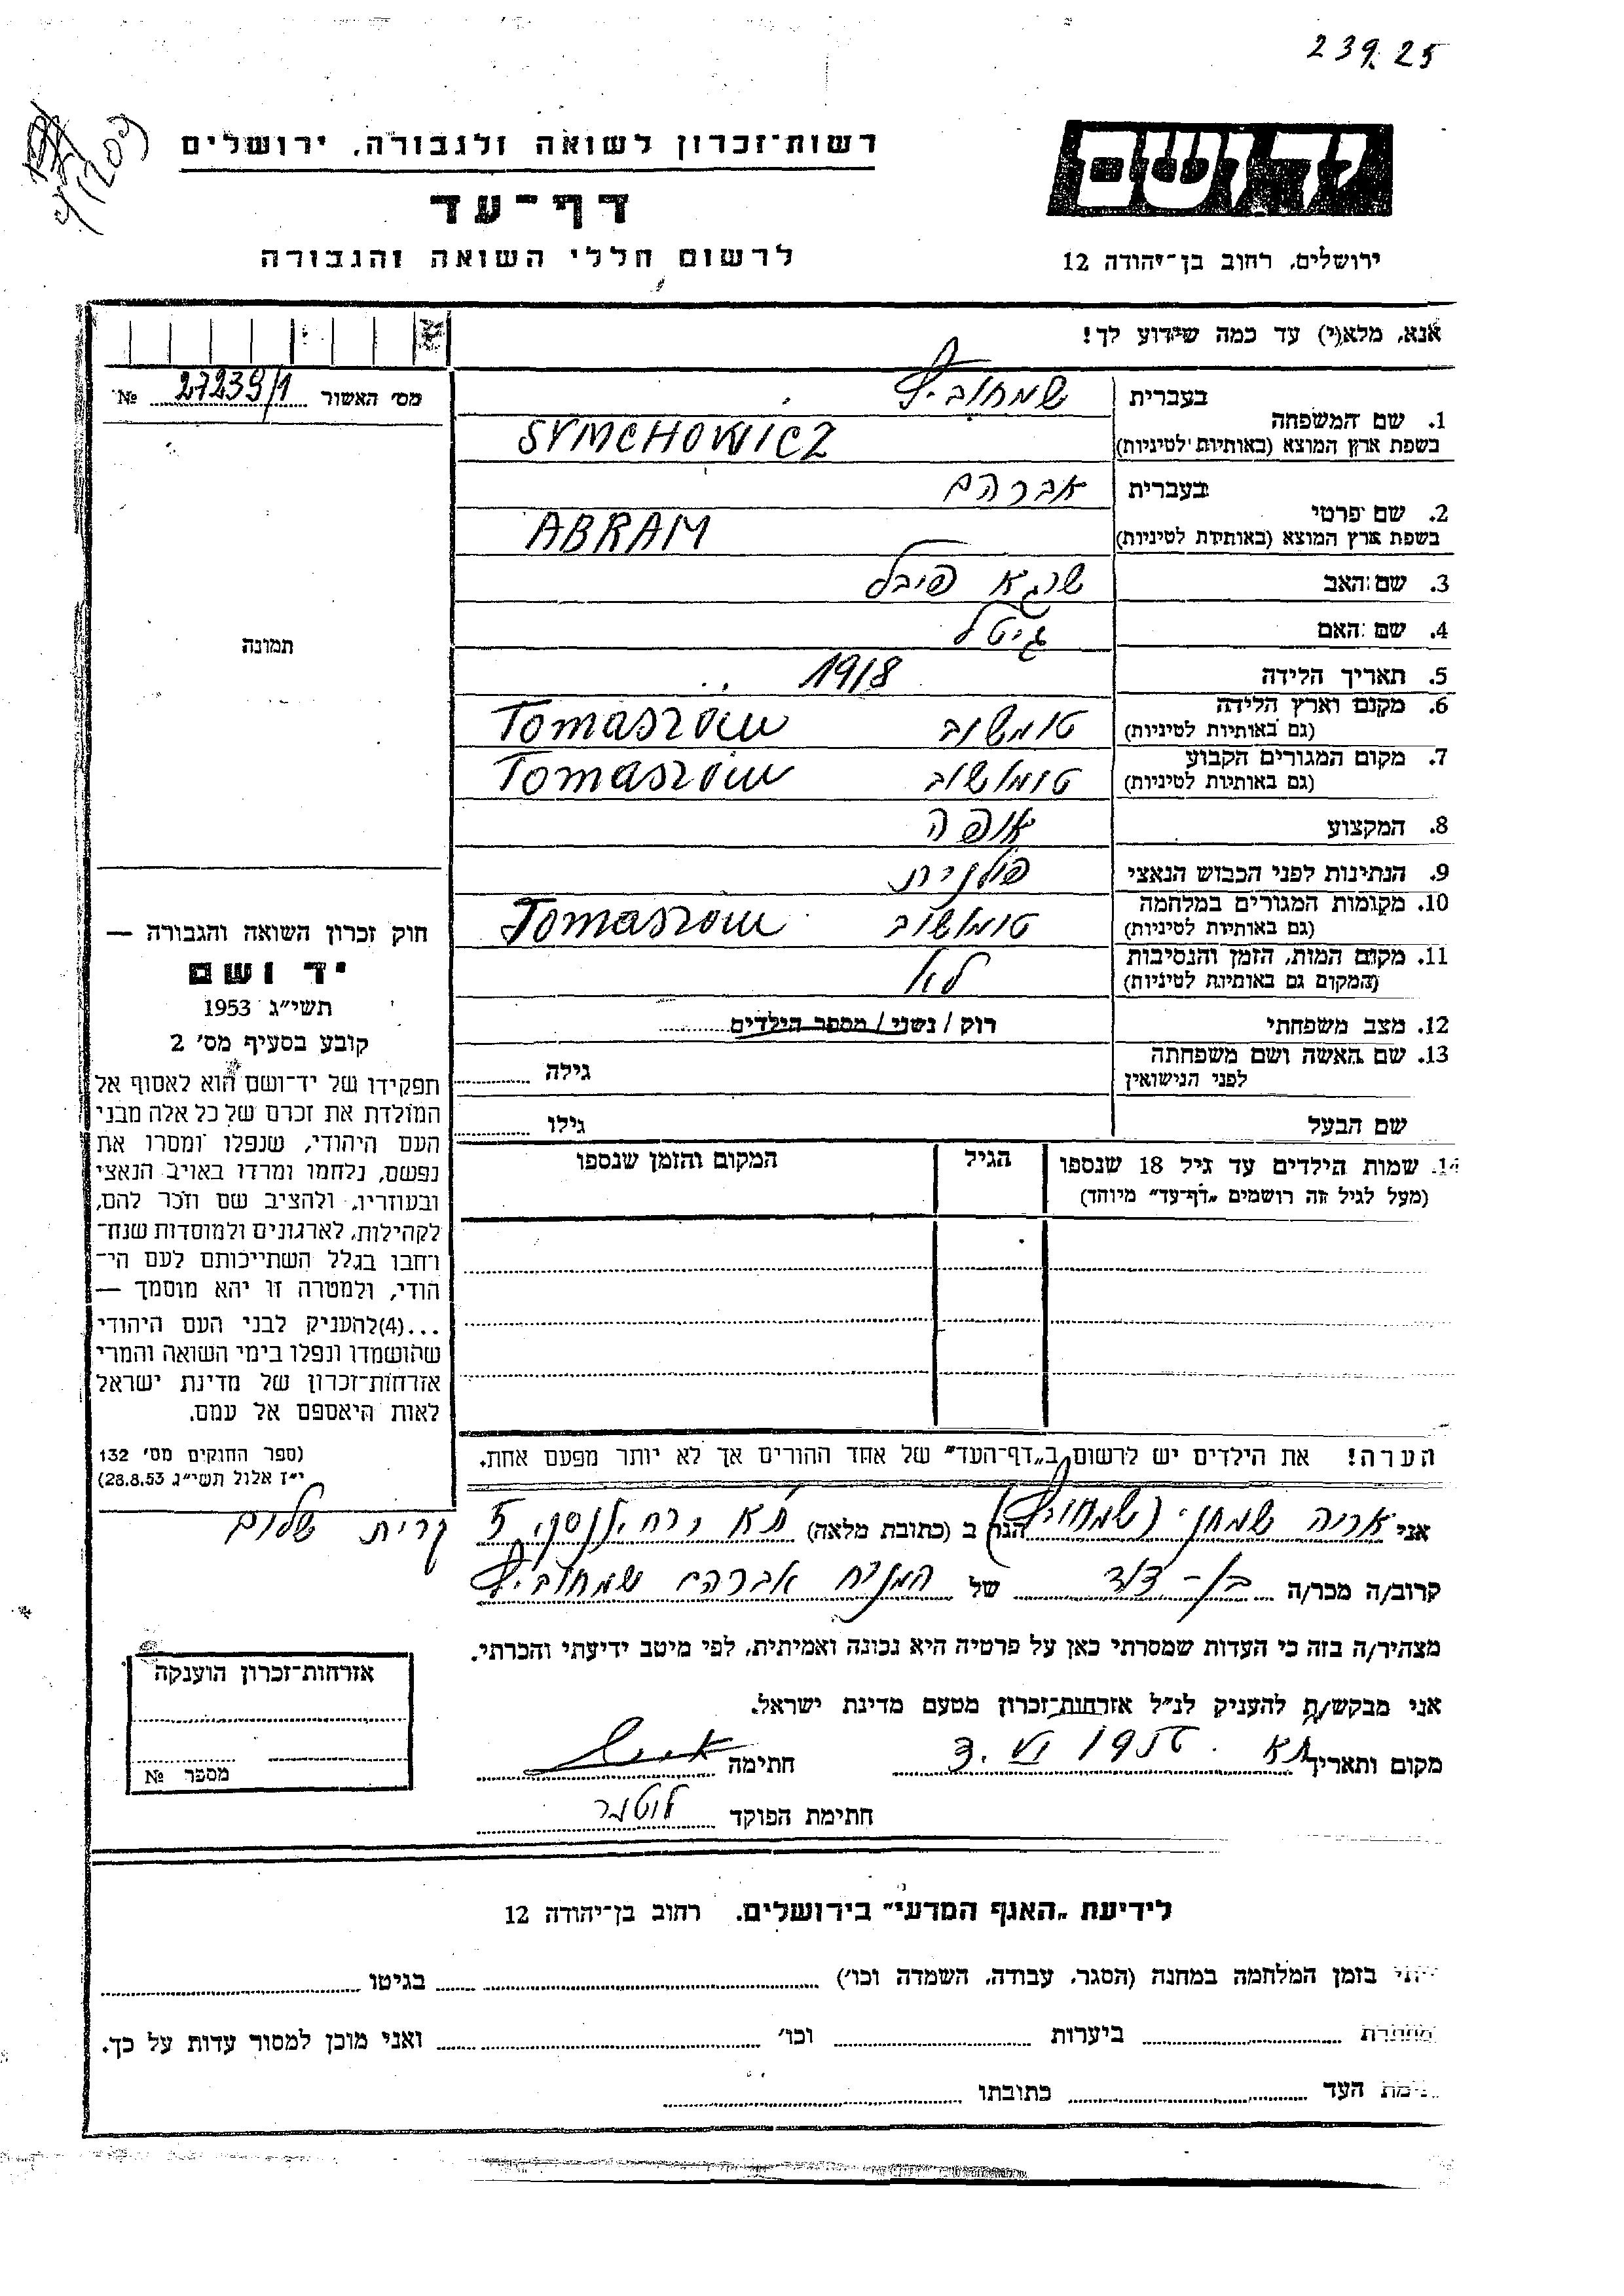 239.25
רשות־זכרון לשואה ולגבורה, ירושלים
יד ושם
דף־עד
לרשום חללי השואה והגבורה
ירושלים, רחוב בן־יהודה 12
אנא, מלא(י) עד כמה שידוע לך!
מס׳ האשור 27239/1 №
1. שם המשפחה בעברית שמחוביץ
בשפת ארץ המוצא (באותיות לטיניות) SYMCHOWICZ
2. שם פרטי בעברית אברהם
בשפת ארץ המוצא (באותיות לטיניות) ABRAM
3. שם האב שרגא פיבל
4. שם האם גיטל
תמונה
5. תאריך הלידה 1918
6. מקום וארץ הלידה (גם באותיות לטיניות) טומשוב Tomaszów
7. מקום המגורים הקבוע (גם באותיות לטיניות) טומשוב Tomaszów
8. המקצוע אופה
9. הנתינות לפני הכבוש הנאצי פולנית
10. מקומות המגורים במלחמה (גם באותיות לטיניות) טומשוב Tomaszów
11. מקום המות, הזמן והנסיבות (המקום גם באותיות לטיניות)
12. מצב משפחתי רוק / נשוי / מספר הילדים
13. שם האשה ושם משפחתה לפני הנישואין גילה
שם הבעל גילו
14. שמות הילדים עד גיל 18 שנספו הגיל המקום והזמן שנספו
(מעל לגיל זה רושמים „דף־עד” מיוחד)
חוק זכרון השואה והגבורה —
יד ושם
תשי״ג 1953
קובע בסעיף מס׳ 2
תפקידו של יד־ושם הוא לאסוף אל
המולדת את זכרם של כל אלה מבני
העם היהודי, שנפלו ומסרו את
נפשם, נלחמו ומרדו באויב הנאצי
ובעוזריו, ולהציב שם וזכר להם,
לקהילות, לארגונים ולמוסדות שנח־
רחבו בגלל השתייכותם לעם הי־
הודי, ולמטרה זו יהא מוסמך —
...(4)להעניק לבני העם היהודי
שהושמדו ונפלו בימי השואה והמרי
אזרחות־זכרון של מדינת ישראל
לאות היאספם אל עמם.
(ספר החוקים מס׳ 132
י״ז אלול תשי״ג 28.8.53)
הערה! את הילדים יש לרשום ב„דף־העד” של אחד ההורים אך לא יותר מפעם אחת.
אני אריה שמחוני (שמחוביץ) הגר ב (כתובת מלאה) ת״א קרית שלום
קרוב/ה מכר/ה בן־דוד של המנוח אברהם שמחוביץ
מצהיר/ה בזה כי העדות שמסרתי כאן על פרטיה היא נכונה ואמיתית, לפי מיטב ידיעתי והכרתי.
אני מבקש/ת להעניק לנ״ל אזרחות־זכרון מטעם מדינת ישראל.
מקום ותאריך ת״א 3.VI.1956 חתימה
חתימת הפוקד
אזרחות־זכרון הוענקה
מספר №
לידיעת „האגף המדעי” בירושלים. רחוב בן־יהודה 12
בזמן המלחמה במחנה (הסגר, עבודה, השמדה וכו׳) בגיטו
ביערות וכו׳ ואני מוכן למסור עדות על כך.
העד כתובתו